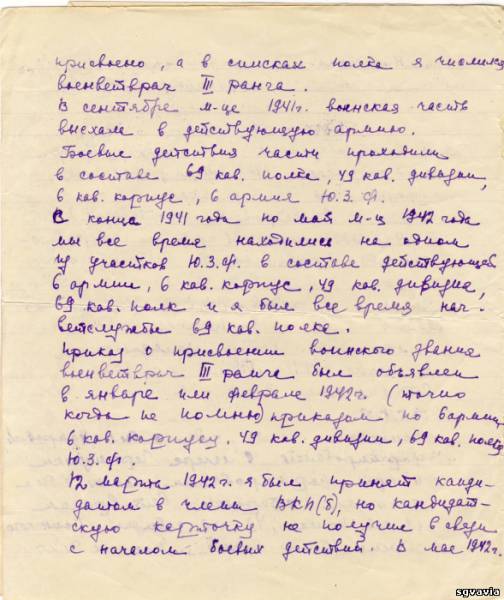 присвоено, а в списках полка я числился
военветврач III ранга.
В сентябре м-це 1941г. воинская часть
выехала в действующую армию.
Боевые действия части проходили
в составе 69 кав. полка, 49 кав. дивизии,
6 кав. корпус, 6 армия Ю.З.Ф.
С конца 1941 года по май м-ц 1942 года
мы все время находились на одном
из участков Ю.З.Ф. в составе действующей
6 армии, 6 кав. корпус, 49 кав. дивизия,
69 кав. полк и я был все время нач.
ветслужбы 69 кав. полка.
Приказ о присвоении воинского звания
военветврач III ранга был объявлен
в январе или феврале 1942г. (точно
когда не помню) приказом по 6 армии,
6 кав. корпусу, 49 кав. дивизии, 69 кав. полку
Ю.З.Ф.
12 марта 1942г. я был принят канди-
датом в члены ВКП(б), но кандидат-
скую карточку не получил в связи
с началом боевых действий. В мае 1942г.
sgvavia